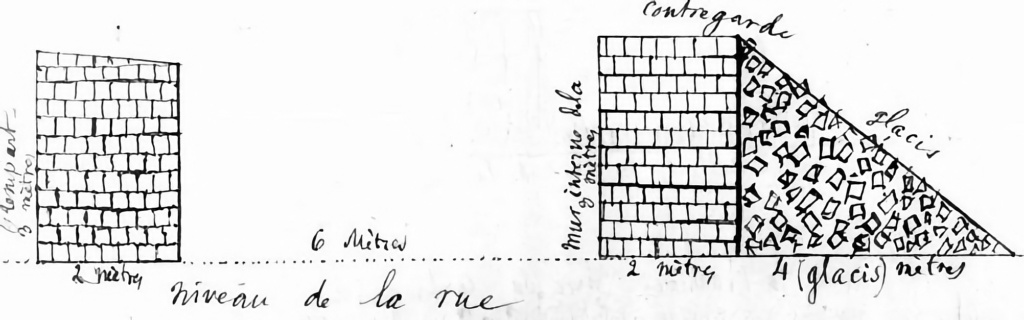 contregarde
glacis
Rempart
3 mètres
Mur interne de la
mètres
6 Mètres
2 mètres
2 mètres
4 (glacis) mètres
niveau de la rue